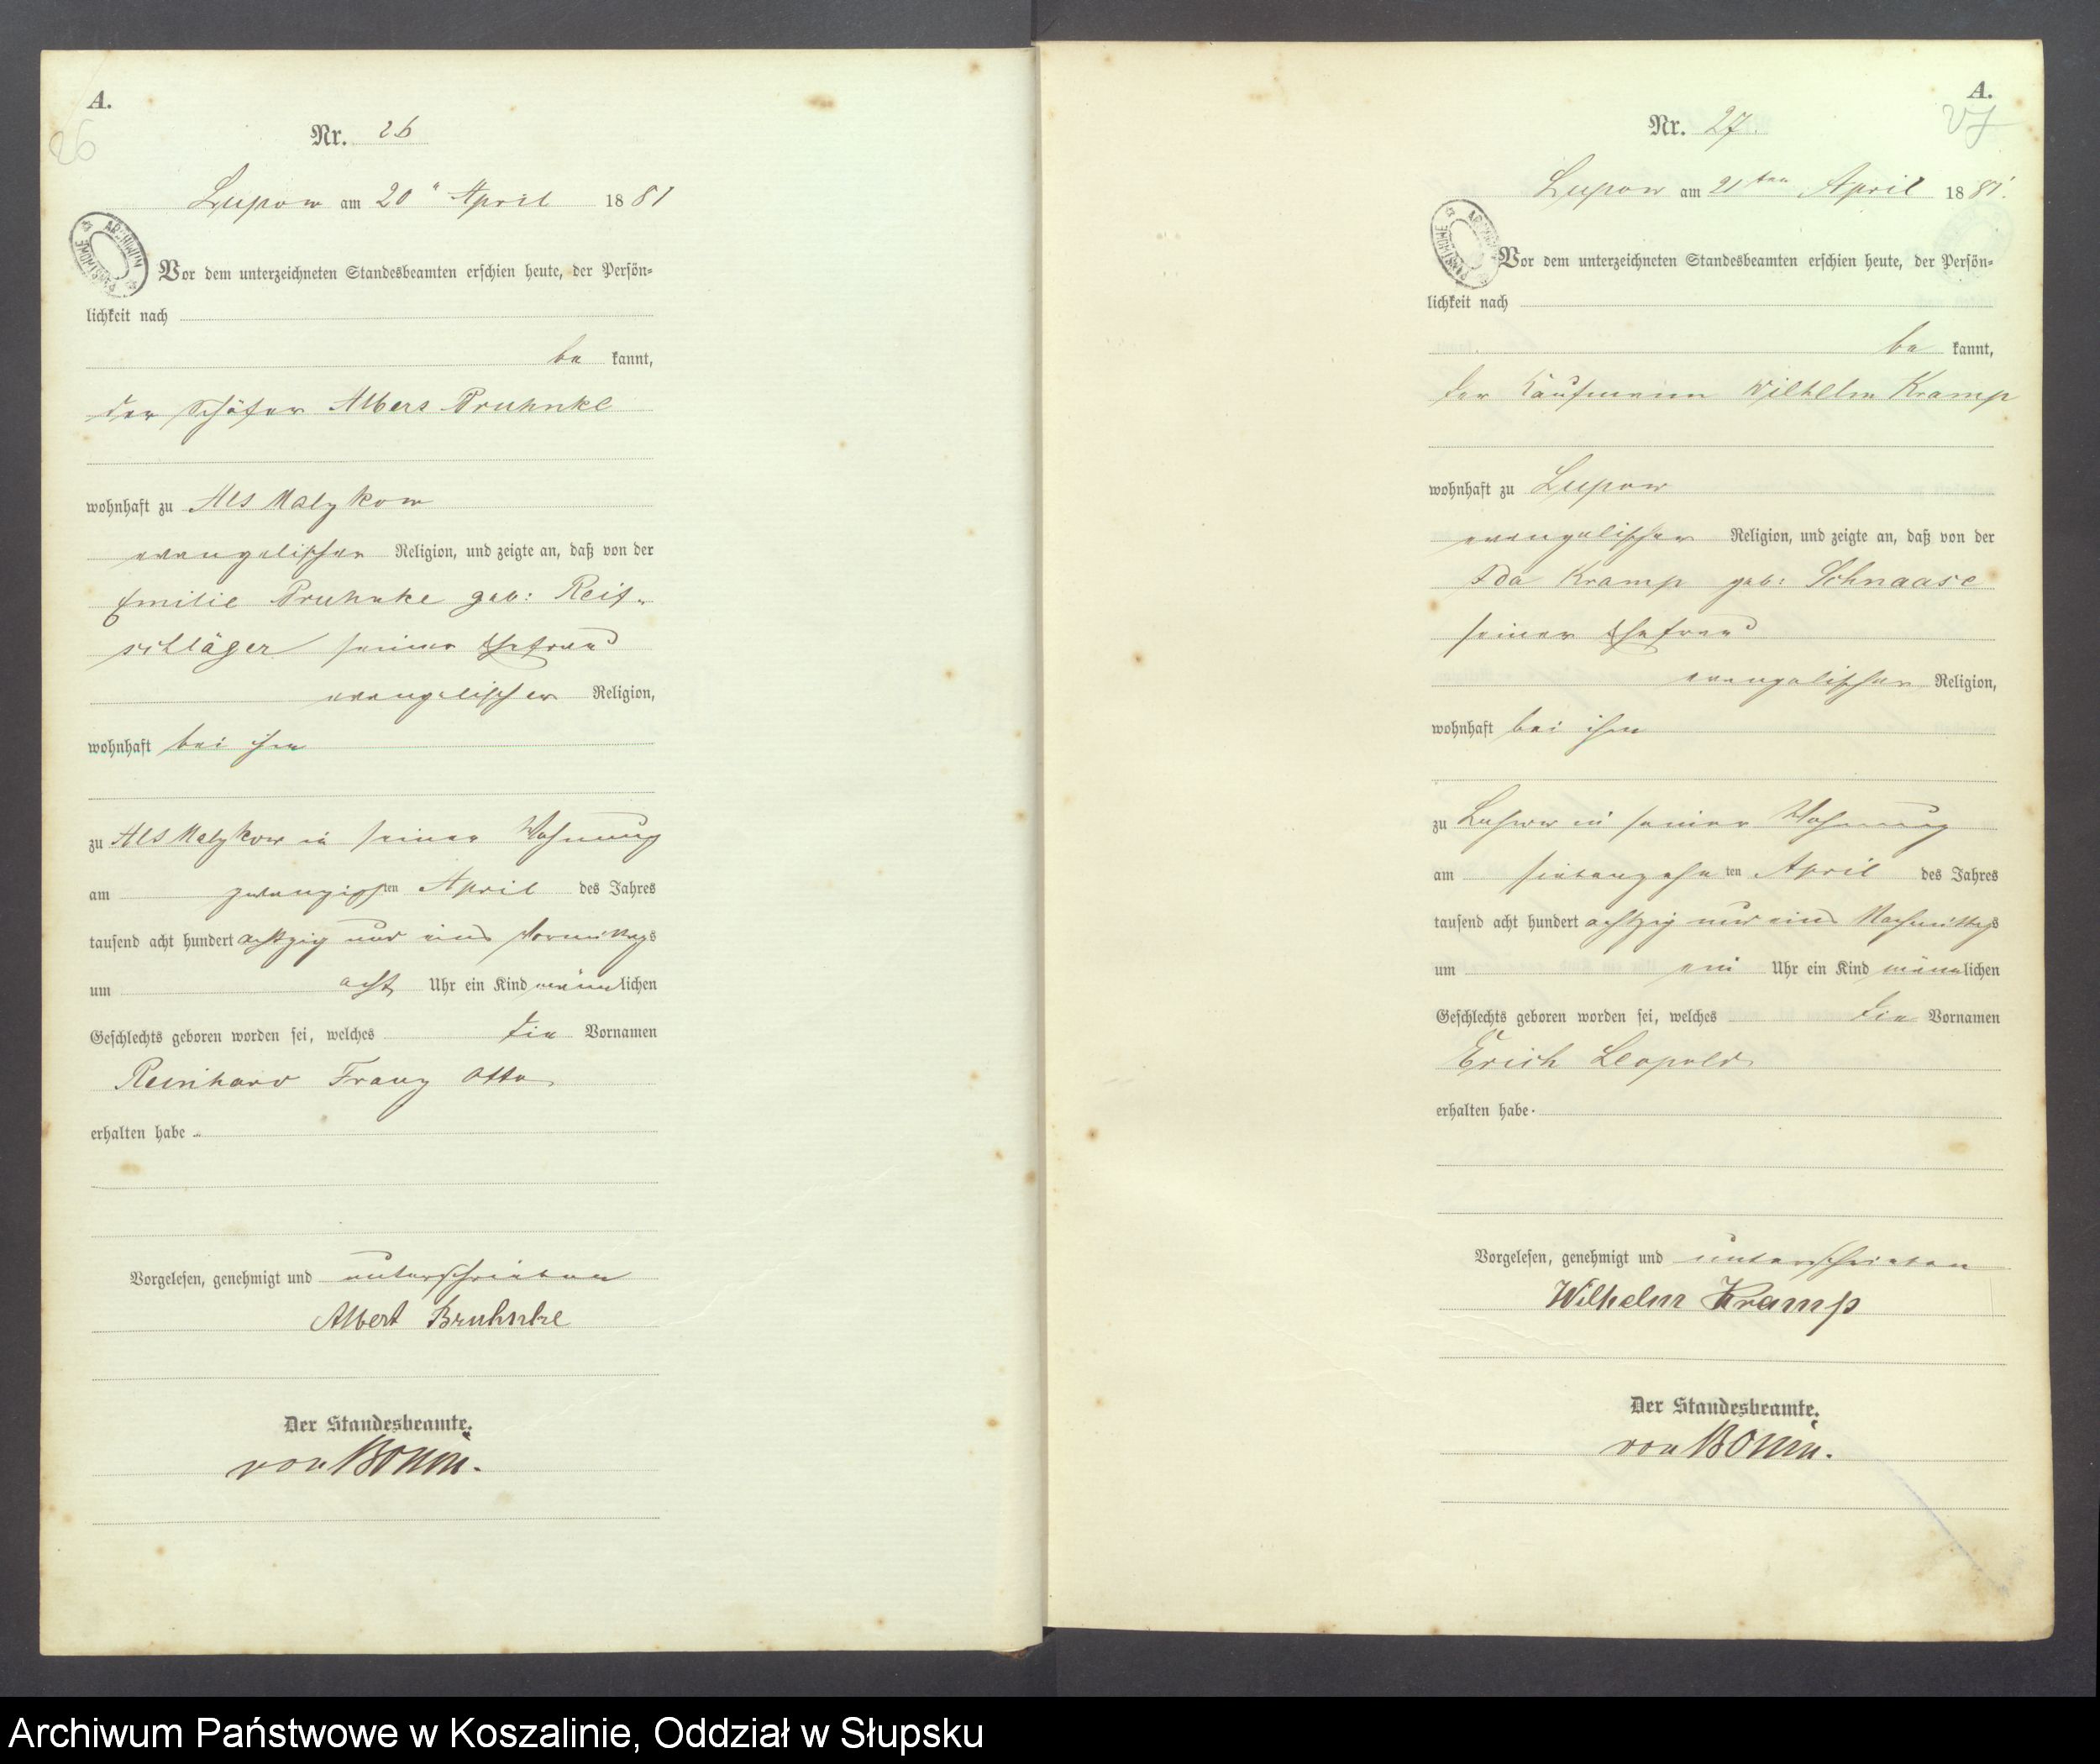 A.
26
Nr. 26
Lupow am 20ⁿ April 1881
ARCHIWUM PAŃSTWOWE
Vor dem unterzeichneten Standesbeamten erschien heute, der Persön-
lichkeit nach
be kannt,
der Schäfer Albert Pruhnke
wohnhaft zu Alt Malzkow
evangelischer Religion, und zeigte an, daß von der
Emilie Pruhnke geb: Reif-
schläger seiner Ehefrau
evangelischer Religion,
wohnhaft bei ihm
zu Alt Malzkow in seiner Wohnung
am zwanzigsten April des Jahres
tausend acht hundert achtzig und eins Vormittags
um acht Uhr ein Kind männlichen
Geschlechts geboren worden sei, welches die Vornamen
Reinhard Franz Otto
erhalten habe
Vorgelesen, genehmigt und unterschrieben
Albert Bruhnke
Der Standesbeamte.
von Bonin.
A.
27
Nr. 27.
Lupow am 21ten April 1881.
ARCHIWUM PAŃSTWOWE
Vor dem unterzeichneten Standesbeamten erschien heute, der Persön-
lichkeit nach
be kannt,
der Kaufmann Wilhelm Kramp
wohnhaft zu Lupow
evangelischer Religion, und zeigte an, daß von der
Ida Kramp geb: Schnaase
seiner Ehefrau
evangelischer Religion,
wohnhaft bei ihm
zu Lupow in seiner Wohnung
am siebenzehnten April des Jahres
tausend acht hundert achtzig und eins Nachmittags
um ein Uhr ein Kind männlichen
Geschlechts geboren worden sei, welches die Vornamen
Erich Leopold
erhalten habe.
Vorgelesen, genehmigt und unterschrieben
Wilhelm Kramp
Der Standesbeamte.
von Bonin.
Archiwum Państwowe w Koszalinie, Oddział w Słupsku